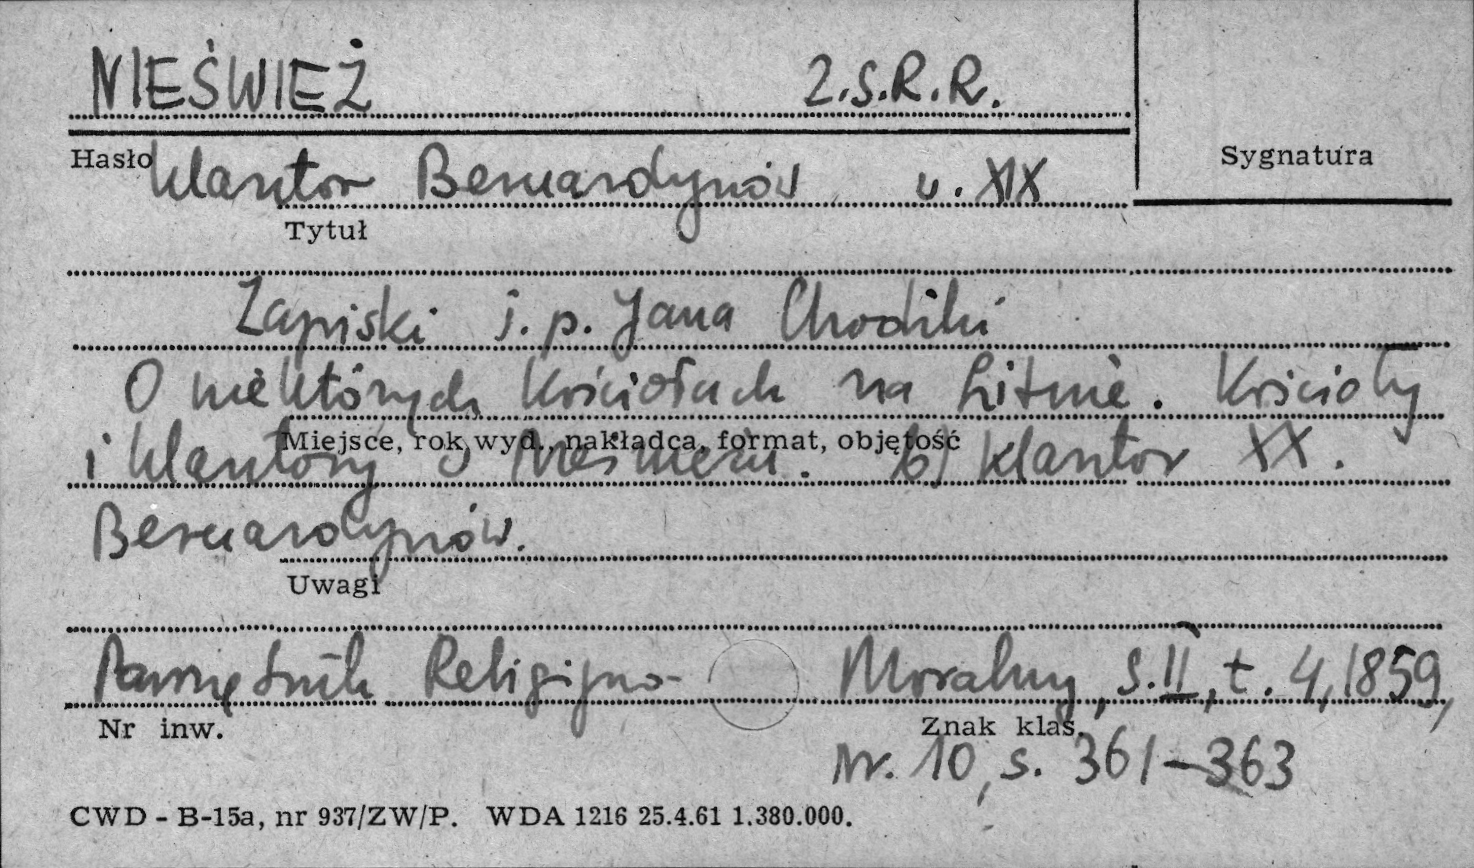 NIEŚWIEŻ Z.S.R.R.
Hasło
Sygnatura
klasztor Bernardynów w. XIX
Tytuł
Zapiski ś.p. Jana Chodźki
O niektórych kościołach na Litwie. Kościoły
Miejsce, rok wyd., nakładca, format, objętość
i klasztory w Nieświeżu. b) klasztor XX.
Bernardynów.
Uwagi
Pamiętnik Religijno- Moralny, S.II, t. 4, 1859,
Nr inw.
Znak klas.
Nr. 10, s. 361-363
CWD - B-15a, nr 937/ZW/P. WDA 1216 25.4.61 1.380.000.